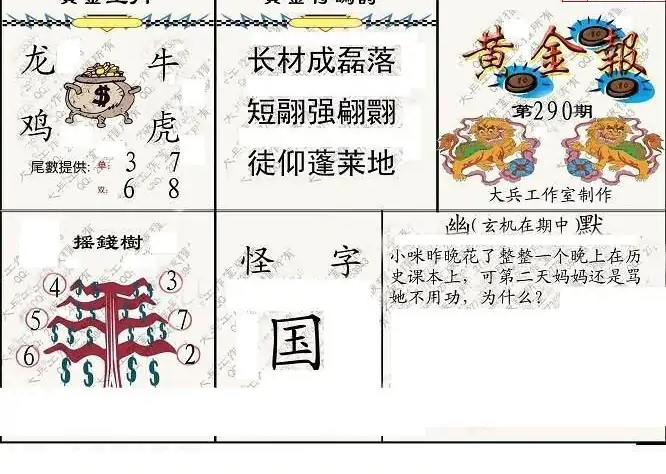 龙 牛
鸡 虎
$
尾數提供: 单: 3 7
双: 6 8
长材成磊落
短翮强翩翾
徒仰蓬莱地
黄金報
第290期
大兵工作室制作
摇錢樹
4 3
5 7
6 2
怪 字
国
幽(玄机在期中)默
小咪昨晚花了整整一个晚上在历
史课本上，可第二天妈妈还是骂
她不用功，为什么？